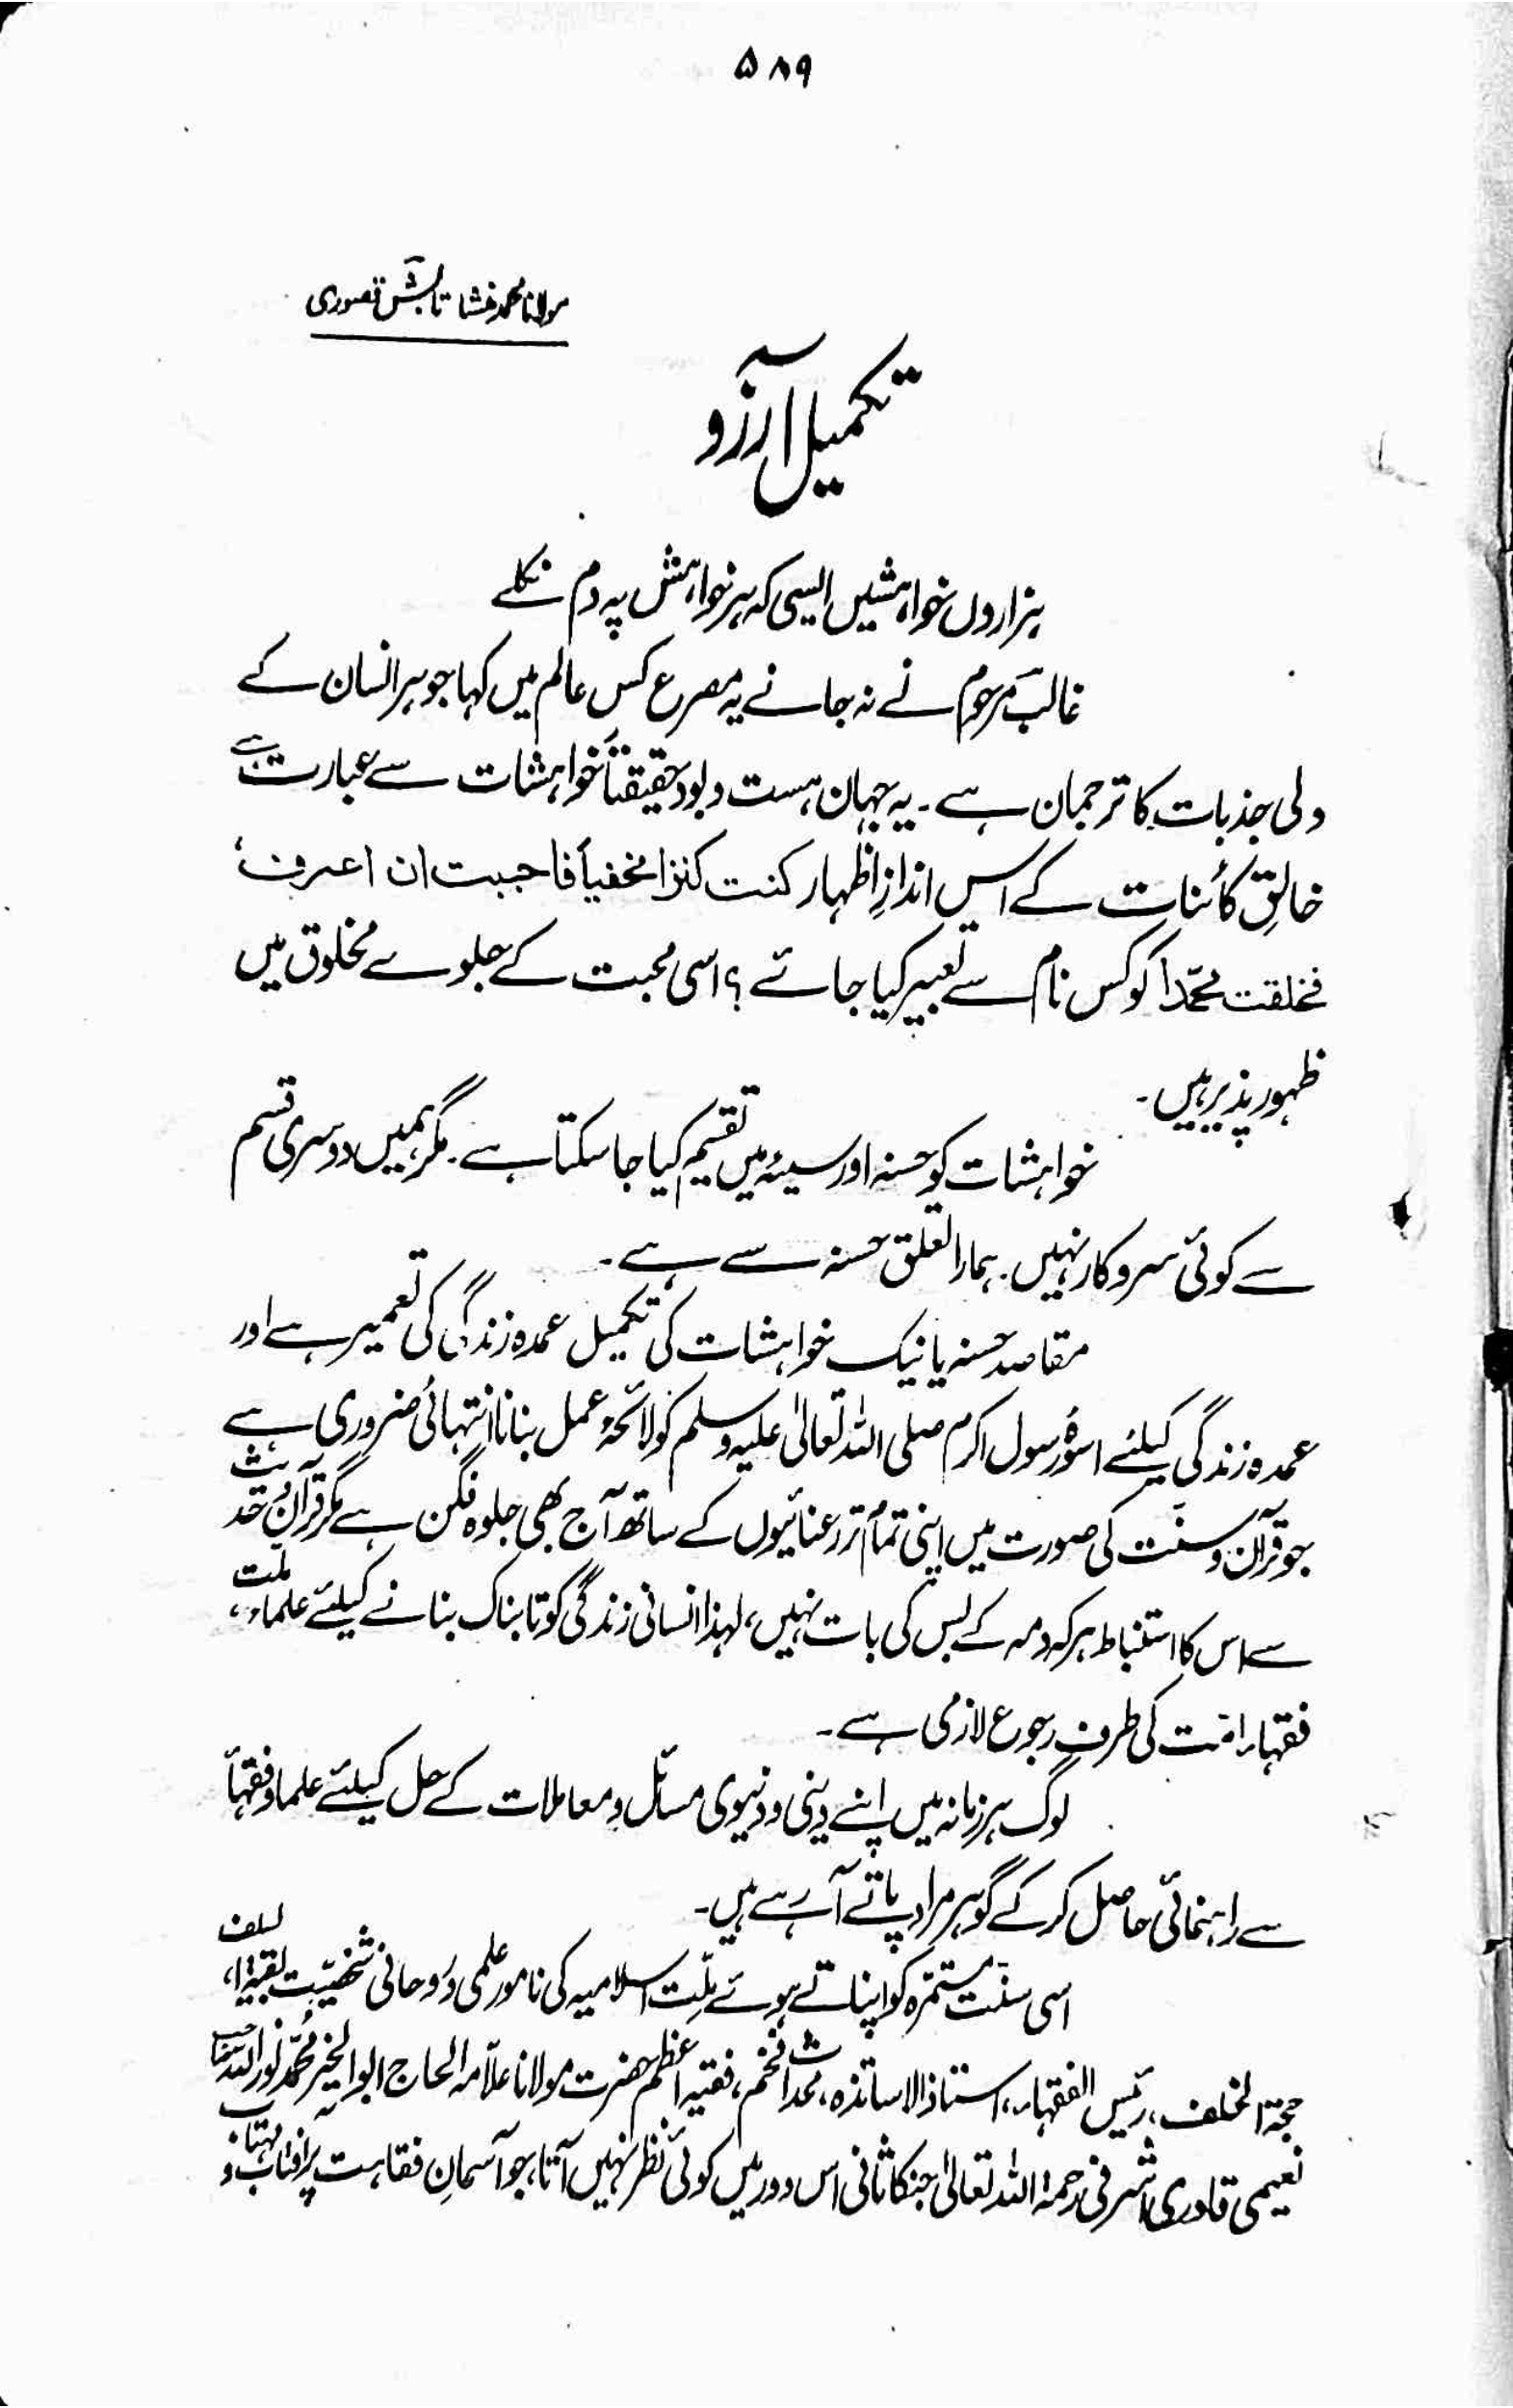 ۵۸۹
مولانا محمد منشا تابش قصوری
تکمیل آرزو
ہزاروں خواہشیں ایسی کہ ہر خواہش پہ دم نکلے
غالب مرحوم نے نہ جانے یہ مصرع کس عالم میں کہا جو ہر انسان کے
دلی جذبات کا ترجمان ہے۔ یہ جہان ہست و بود حقیقتاً خواہشات سے عبارت ہے
خالقِ کائنات کے اس اندازِ اظہار کنت کنزا مخفیاً فاحببت ان اعرف
فخلقت محمّدا کو کس نام سے تعبیر کیا جائے؟ اسی محبت کے جلوے مخلوق میں
ظہور پذیر ہیں۔
خواہشات کو حسنہ اور سیئہ میں تقسیم کیا جا سکتا ہے۔ مگر ہمیں دوسری قسم
سے کوئی سروکار نہیں۔ ہمارا تعلق حسنہ سے ہے۔
مقاصد حسنہ یا نیک خواہشات کی تکمیل عمدہ زندگی کی تعمیر ہے اور
عمدہ زندگی کیلئے اسوۂ رسول اکرم صلی اللہ تعالیٰ علیہ وسلم کو لائحۂ عمل بنانا انتہائی ضروری ہے
جو قرآن و سنّت کی صورت میں اپنی تمام تر رعنائیوں کے ساتھ آج بھی جلوہ فگن ہے مگر قرآن و حدیث
سے اس کا استنباط ہر کہ ومہ کے بس کی بات نہیں، لہذا انسانی زندگی کو تابناک بنانے کیلئے علماء ملت،
فقہاء امّت کی طرف رجوع لازمی ہے۔
لوگ ہر زمانہ میں اپنے دینی و دنیوی مسائل و معاملات کے حل کیلئے علما و فقہأ
سے راہنمائی حاصل کر کے گوہر مراد پاتے آ رہے ہیں۔
اسی سنّت مستمرّہ کو اپناتے ہوئے ملّت اسلامیہ کی نامور علمی و روحانی شخصیّت بقیۃ السلف،
حجۃ الخلف، رئیس الفقہاء، استاذ الاساتذہ، محدث افخم، فقیہ اعظم حضرت مولانا علاّمہ الحاج ابو الخیر محمّد نور اللہ صاحب
نعیمی قادری اشرفی رحمۃ اللہ تعالیٰ جنکا ثانی اس دور میں کوئی نظر نہیں آتا، جو آسمانِ فقاہت پر آفتاب و مہتاب